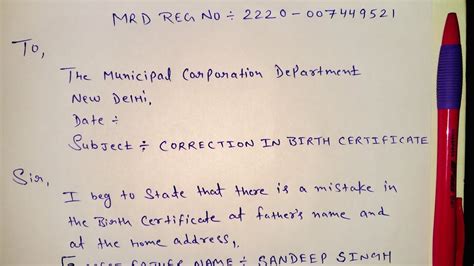 MRD REG NO ÷ 2220-007449521
To,
The Municipal Corporation Department
New Delhi,
Date ÷
Subject ÷ CORRECTION IN BIRTH CERTIFICATE
Sir,
I beg to State that there is a mistake in
the Birth Certificate at father's name and
at the Home address,
FATHER NAME ÷ SANDEEP SINGH